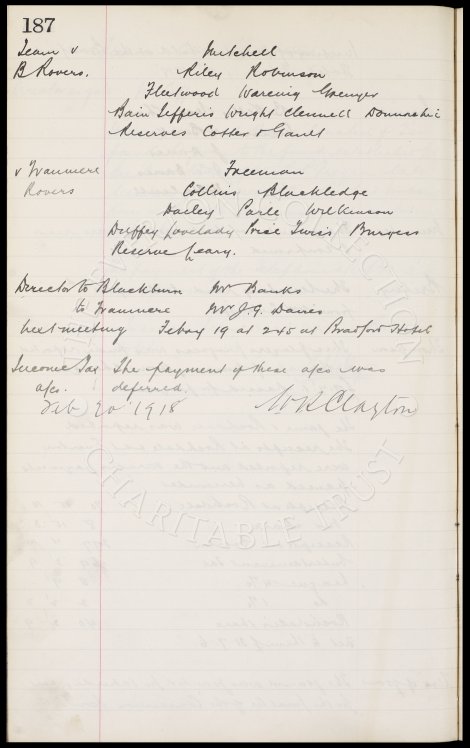 187
Team v Mitchell
B Rovers. Riley Robinson
Fleetwood Wareing Grenyer
Bain Jefferis Wright Clennell Donnachie
Reserves Cotter & Gault
v Tranmere Freeman
Rovers Collins Blackledge
Dailey Parle Wilkinson
Duffey Lovelady Price Twiss Burgess
Reserve Leary.
Director to Blackburn Mr Banks
to Tranmere Mr J.G. Davies
Next meeting Febry 19 at 2.45 at Bradford Hotel
Income Tax The payment of these a/cs was
a/cs. deferred.
Feb 20 1918 W R Clayton
CHARITABLE TRUST
COLLECTION